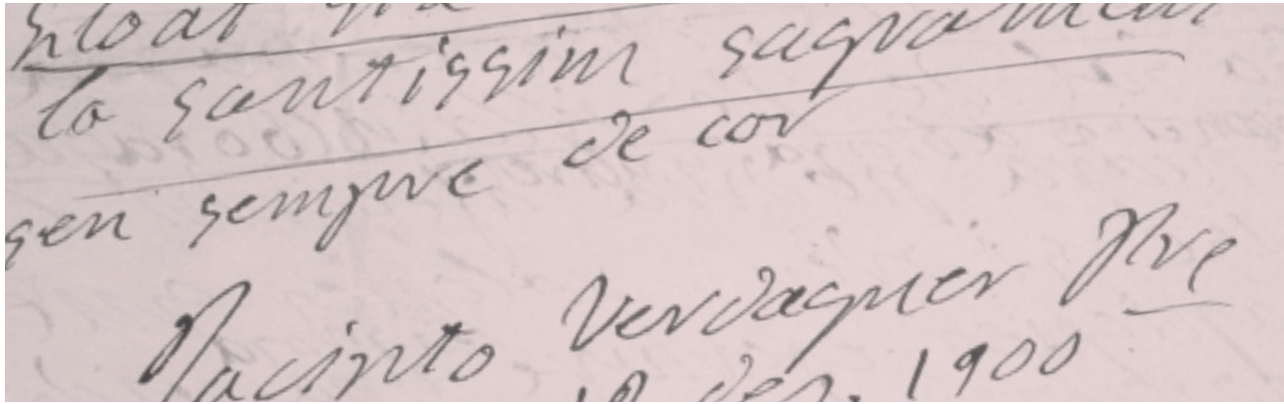 lo santissim sagrament
seu sempre de cor
Jacinto Verdaguer Pre
des. 1900